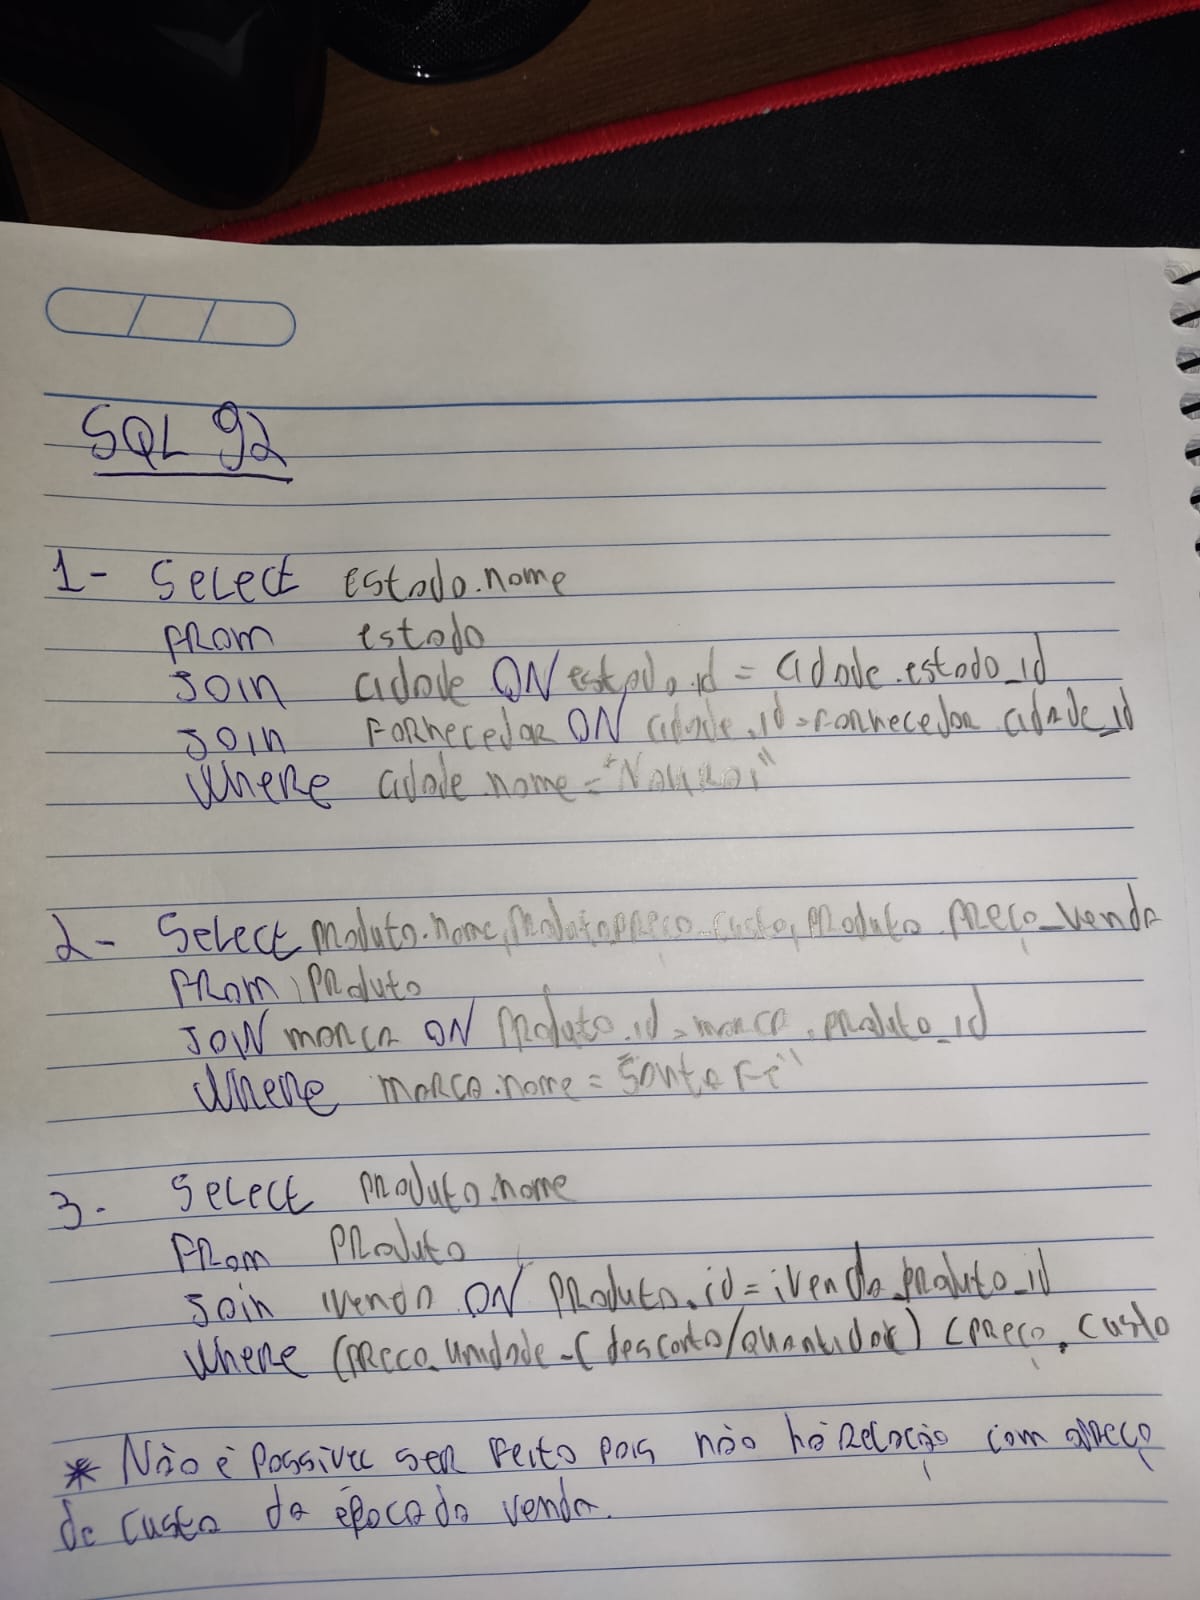 SQL 92
1- Select estado.nome
FROM estado
JOIN cidade ON estado.id = cidade.estado_id
JOIN Fornecedor ON cidade.id = Fornecedor.cidade_id
Where cidade.nome = "Navirai"
2- Select produto.nome, produto.preco_custo, produto.preço_venda
From produto
JOIN marca ON Produto.id = marca.produto_id
Where marca.nome = "Santa Fé"
3- Select produto.nome
From Produto
Join ivenda ON Produto.id = ivenda.produto_id
Where (preco_unidade - (desconto/quantidade) < preço_custo
* Não é possivel ser feito pois não há relação com o preço
de custo da época da venda.